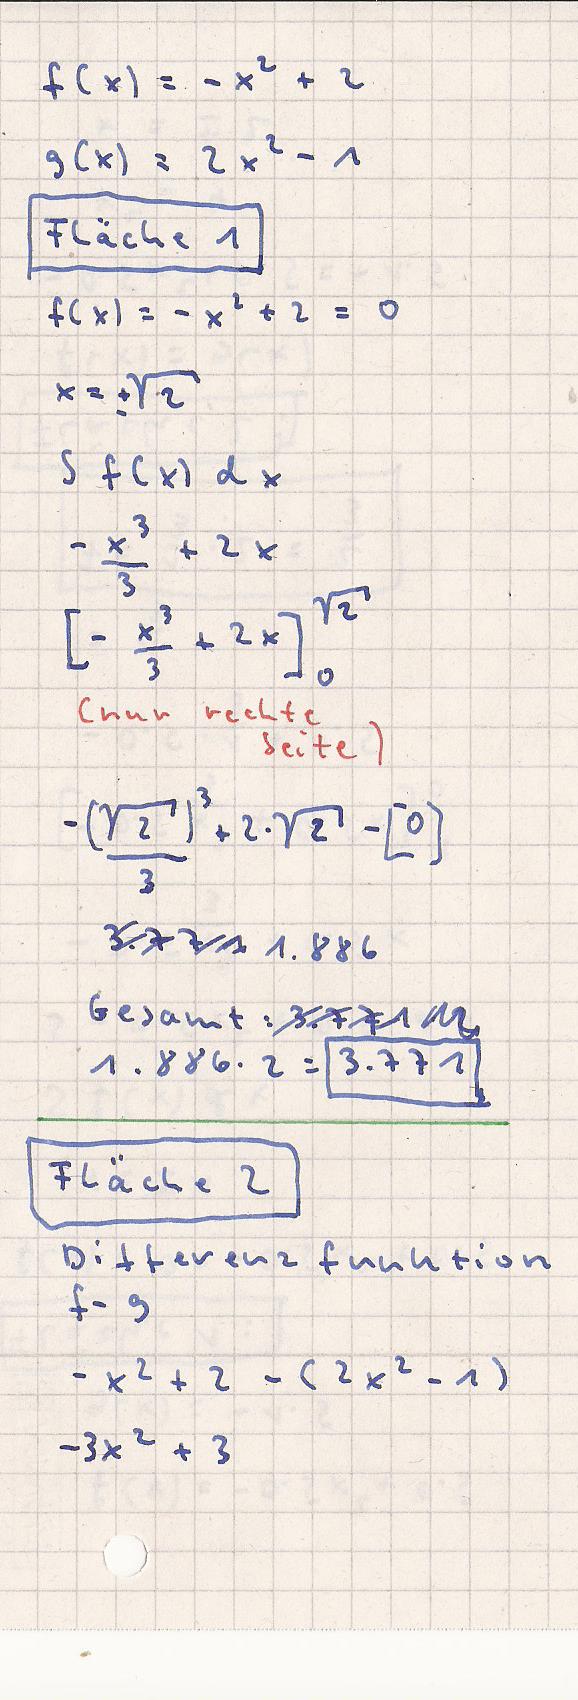 f(x) = -x² + 2
g(x) = 2x² - 1
Fläche 1
f(x) = -x² + 2 = 0
x = ±√2
∫ f(x) dx
-x³/3 + 2x
[-x³/3 + 2x]₀^√2
(nur rechte
Seite)
-(√2)³/3 + 2·√2 - [0]
3.771 1.886
Gesamt: 3.771
1.886·2 = 3.771
Fläche 2
Differenzfunktion
f-g
-x² + 2 - (2x² - 1)
-3x² + 3